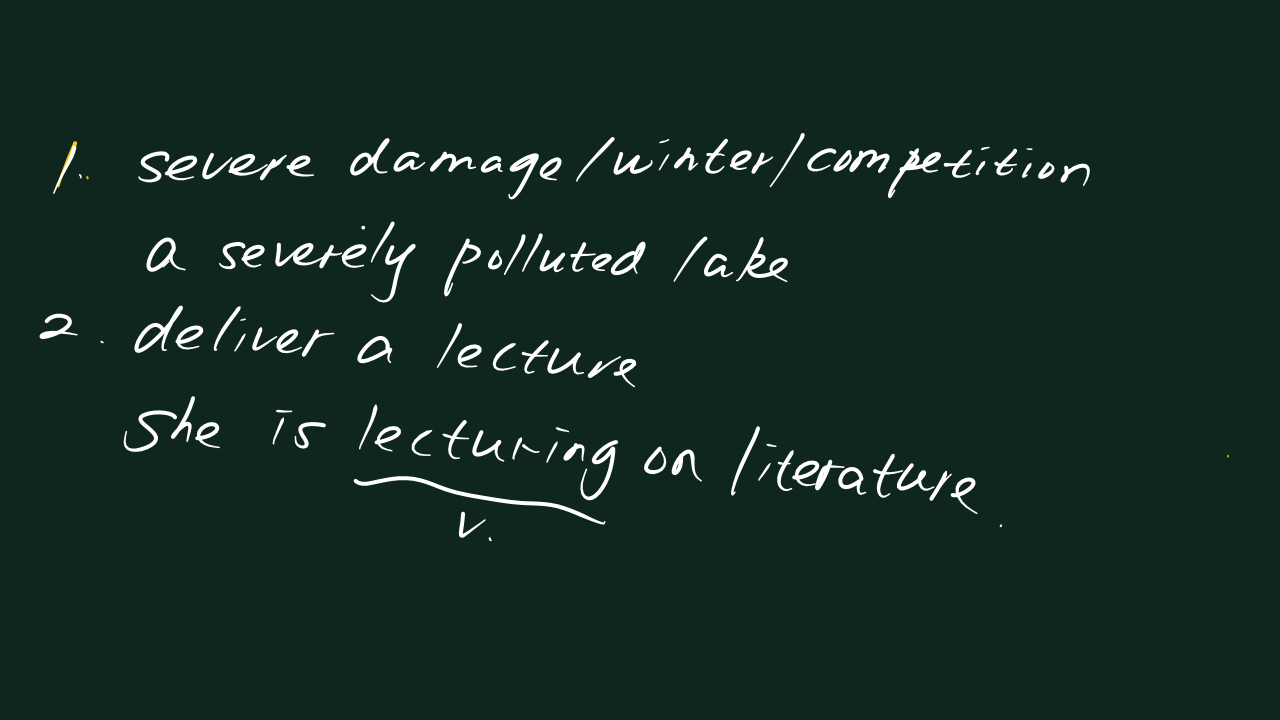 1. severe damage/winter/competition
a severely polluted lake
2. deliver a lecture
She is lecturing on literature.
v.